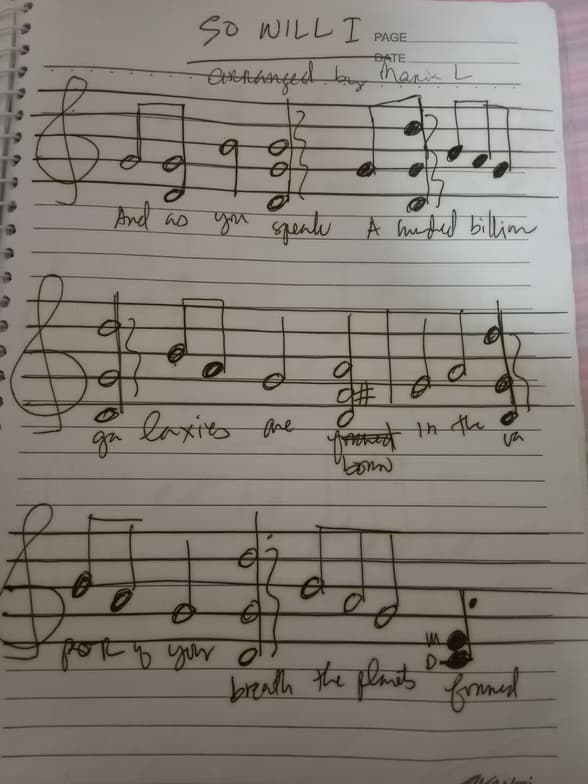 SO WILL I
PAGE
DATE
arranged by Maria L
And as you speak A hundred billion
ga laxies are formed born in the va
por of your
M
D
breath the planets formed